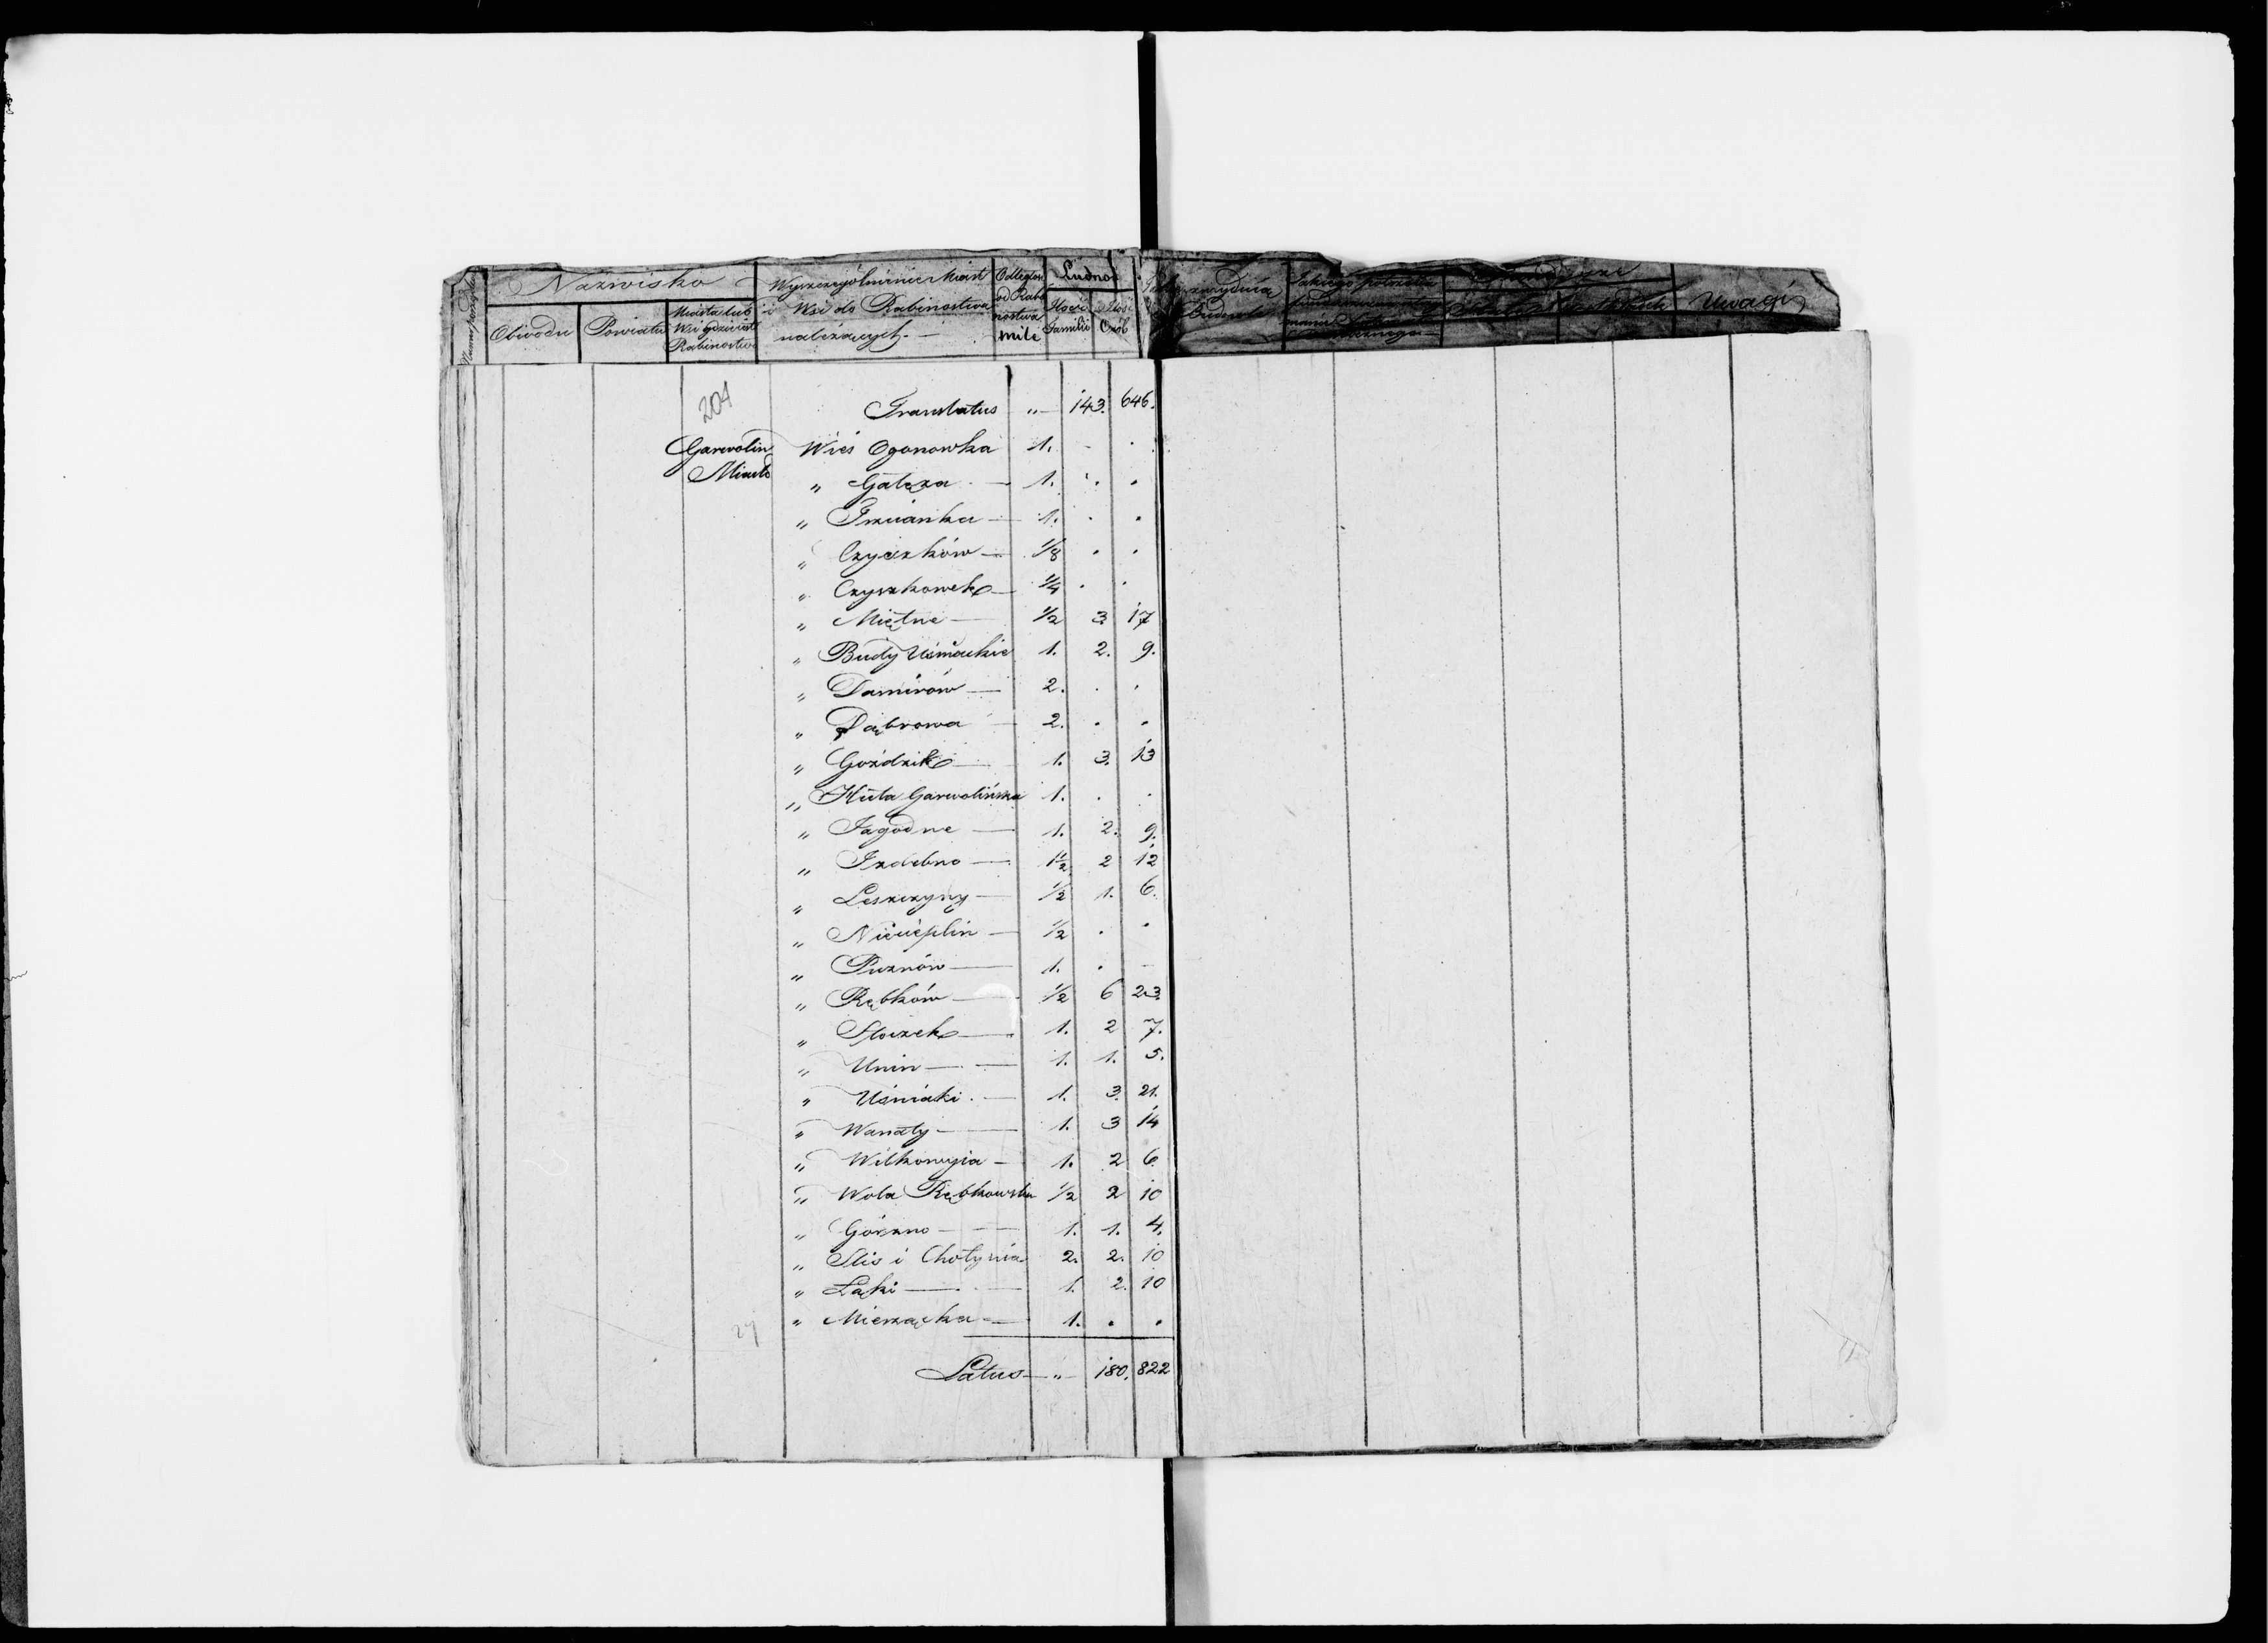 Nazwisko
Obwodu
Powiatu
Miasta lub
Wsi gdzie jest
Rabinostwo
Wyszczególnienie Miast
i Wsi do Rabinostwa
należących.
Odległość
od Rabi
nostwa
mile
Ludność
Ilość
Familii
Ilość
Osób
Uwagi
204
Translatus " 143. 646.
Garwolin Wieś Ogonowka 1. - .
Miasto " Gałęza 1. . .
" Trzcianka 1. . .
" Czyczków 1/8 . .
" Czyszkowek 1/4 . .
" Miętne 1/2 3 17
" Budy Uśniackie 1. 2. 9.
" Damirów 2. . .
" Dąbrowa 2. . .
" Goździk 1. 3. 13
" Huta Garwolińska 1. . .
" Jagodne 1. 2. 9.
" Izdebno 1 1/2 2 12
" Leszczyny 1/2 1. 6.
" Niecieplin 1/2 . .
" Puznów 1. . -
" Rębków 1/2 6 23.
" Stoczek 1. 2 7.
" Unin 1. 1. 5.
" Uśniaki 1. 3. 21.
" Wanaty 1. 3 14
" Wilkowyia 1. 2 6.
" Wola Rębkowska 1/2 2 10
" Górzno 1. 1. 4.
" Slis i Chotynia 2. 2. 10
" Łąki 1. 2. 10
27 " Mierzączka 1. . .
Latus " 180. 822